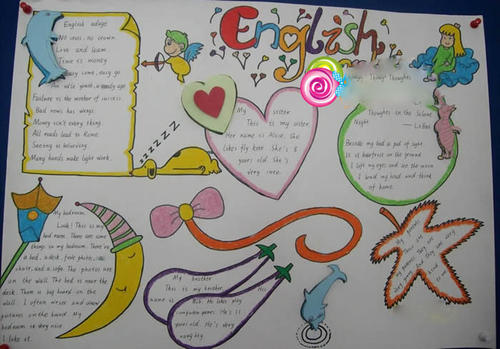 English
English adage
No cross, no crown.
Live and learn.
Time is money
Easy come, easy go
Failure is the mother of success.
Bad news has wings.
Money isn't every thing.
All roads lead to Rome.
Seeing is believing.
Many hands make light work.
zzzzz
My sister
This is my sister.
Her name is Alice. She
likes fly kite. She's 8
years old. She's
very nice.
Thoughts
Thoughts in the Silent
Night
—LiBai
Beside my bed a pool of light
Is it hoarfrost on the ground
I lift my eyes and see the moon
I bend my head and think
of home.
My bedroom.
Look! This is my
bed room. There are some
things in my bedroom. There're
a bed, a desk,
chair, and a sofa. The photos are
on the wall. The bed is near the
desk. There is big board on the
wall. I often and draw
pictures on the board. My
bedroom is very nice
I like it.
My brother
This is my brother. His
name is Bob. He likes play
computer games. He's 11
years old. He's very
naughty
My parents